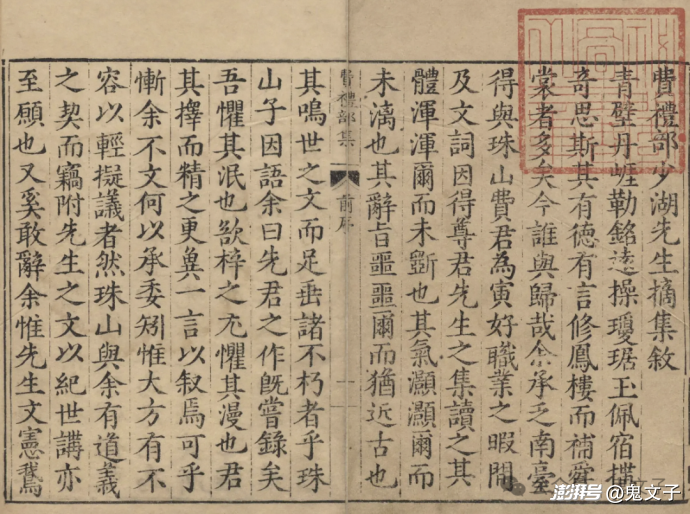 費禮部少湖先生摘集敘
青壁丹崕勒銘遠操瓊琚玉佩宿擅
奇思斯其有德有言修鳳樓而補袞
裳者多矣今誰與歸哉余承乏南臺
得與珠山費君為寅好職業之暇間
及文詞因得尊君先生之集讀之其
體渾渾爾而未斲也其氣灝灝爾而
未漓也其辭旨噩噩爾而猶近古也
費禮部集
前序
一
其鳴世之文而足垂諸不朽者乎珠
山子因語余曰先君之作旣嘗錄矣
吾懼其泯也欲梓之尤懼其漫也君
其擇而精之更兾一言以叙焉可乎
慚余不文何以承委矧惟大方有不
容以輕擬議者然珠山與余有道義
之契而竊附先生之文以紀世講亦
至願也又奚敢辭余惟先生文憲鵞
澎湃号@鬼文子